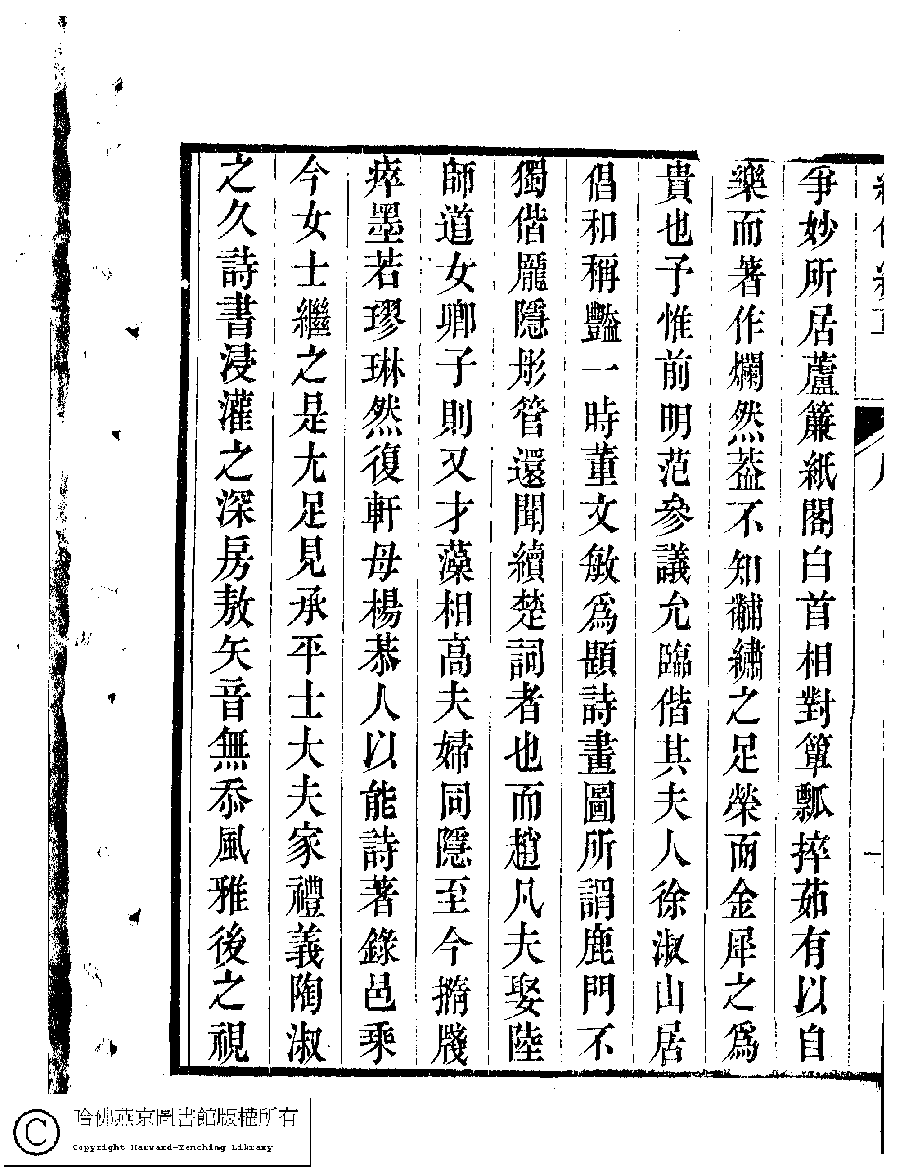 爭妙所居蘆簾紙閣白首相對簞瓢捽茹有以自
樂而著作爛然葢不知黼繡之足榮而金犀之爲
貴也予惟前明范參議允臨偕其夫人徐淑山居
倡和稱豔一時董文敏爲題詩畫圖所謂鹿門不
獨偕龐隱彤管還聞續楚詞者也而趙凡夫娶陸
師道女卿子則又才藻相高夫婦同隱至今搨牋
瘁墨若璆琳然復軒母楊恭人以能詩著錄邑乘
今女士繼之是尤足見承平士大夫家禮義陶淑
之久詩書浸灌之深房敖矢音無忝風雅後之視
哈佛燕京圖書館版權所有
Copyright Harvard-Yenching Library